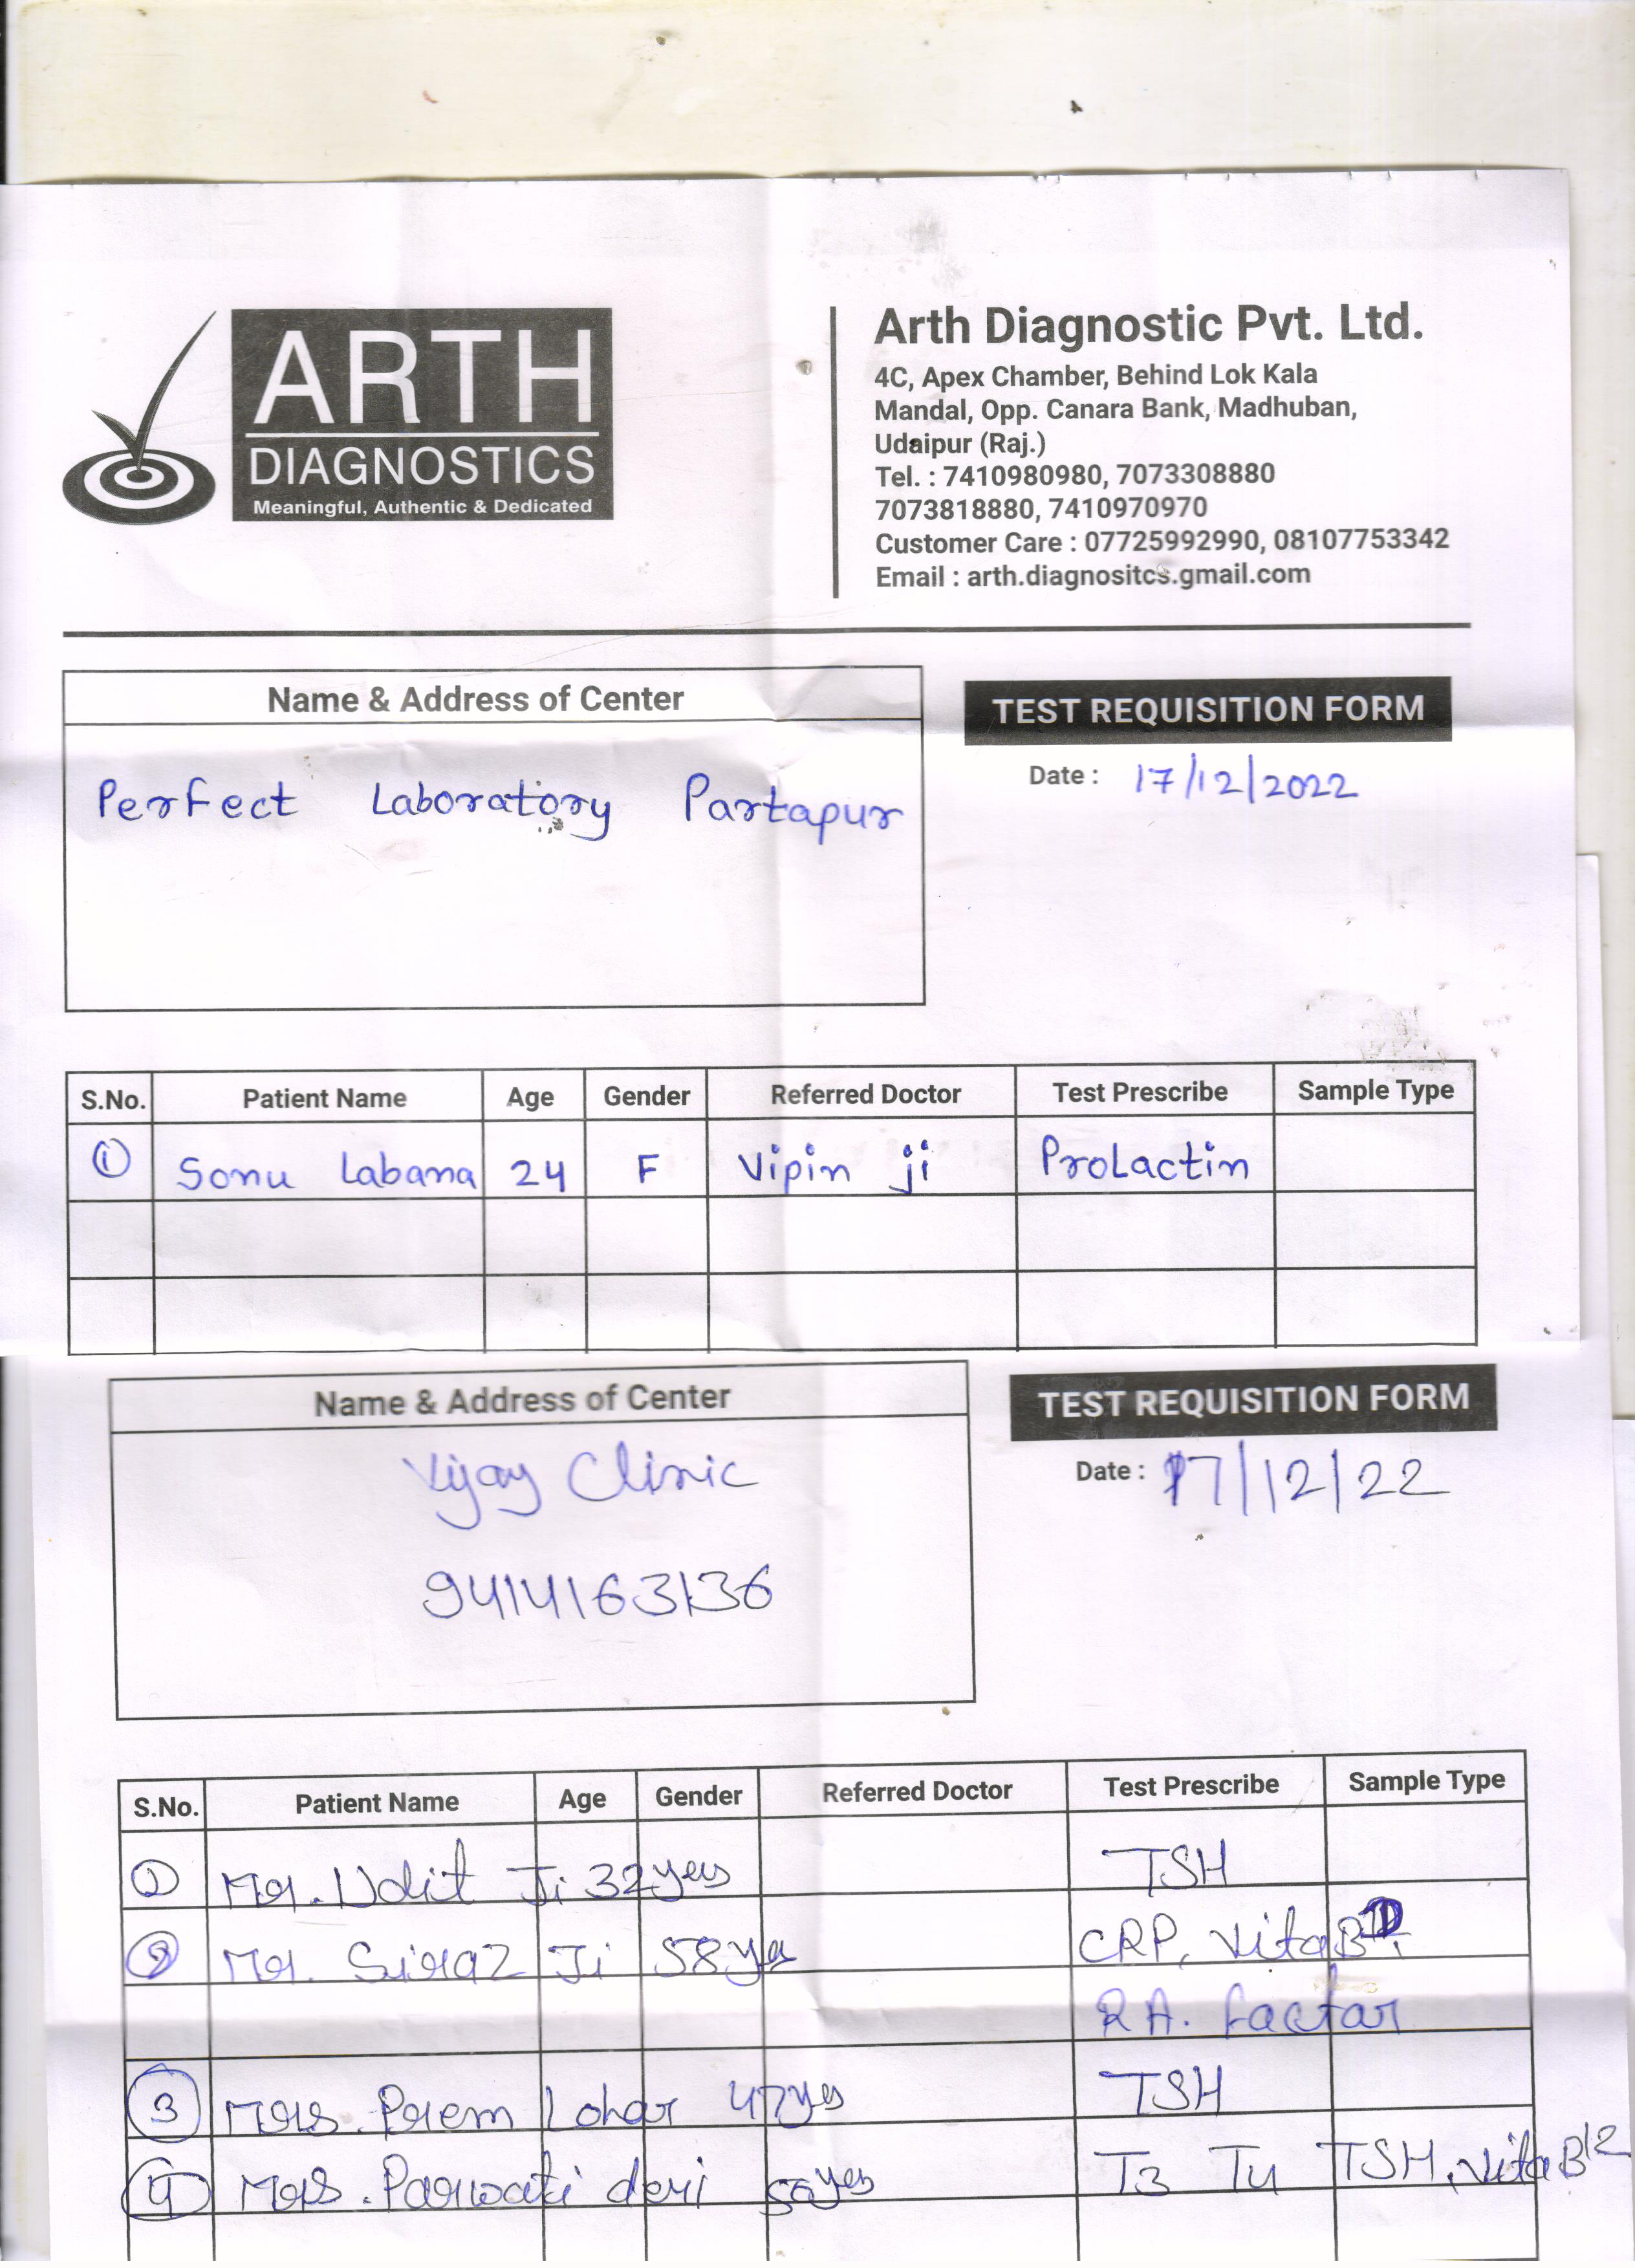 ARTH
DIAGNOSTICS
Meaningful, Authentic & Dedicated
Arth Diagnostic Pvt. Ltd.
4C, Apex Chamber, Behind Lok Kala
Mandal, Opp. Canara Bank, Madhuban,
Udaipur (Raj.)
Tel. : 7410980980, 7073308880
7073818880, 7410970970
Customer Care : 07725992990, 08107753342
Email : arth.diagnositcs.gmail.com
Name & Address of Center
Perfect Laboratory Partapur
TEST REQUISITION FORM
Date : 17/12/2022
S.No. Patient Name Age Gender Referred Doctor Test Prescribe Sample Type
1 Sonu Labana 24 F Vipin ji ProLactin
Name & Address of Center
Vijay Clinic
9414163136
TEST REQUISITION FORM
Date : 17/12/22
S.No. Patient Name Age Gender Referred Doctor Test Prescribe Sample Type
1 Mr. Udit Ji 32 yrs TSH
2 Mr. Siraz Ji 58 yr CRP, Vita
RA. factar
3 Mrs. Prem Lohar 47 yrs TSH
4 Mrs. Parwati devi yrs T3 T4 TSH, Vita B12